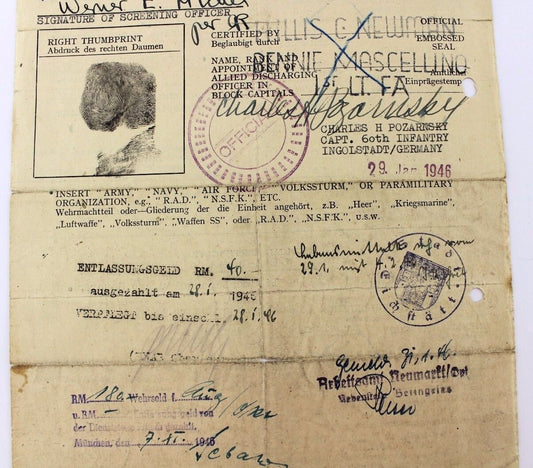 Werner E.
SIGNATURE OF SCREENING OFFICER
per
RIGHT THUMBPRINT
Abdruck des rechten Daumen
CERTIFIED BY
Beglaubigt durch
PHYLLIS C NEWMAN
OFFICIAL
EMBOSSED
SEAL
NAME, RANK AND
APPOINTMENT OF
ALLIED DISCHARGING
OFFICER IN
BLOCK CAPITALS
BENNIE MASCELLINO
1st LT. FA
Amtlicher
Einprägestempel
Charles H Pozarnsky
OFFICIAL
CHARLES H POZARNSKY
CAPT. 60th INFANTRY
INGOLSTADT/GERMANY
29 Jan 1946
*INSERT "ARMY," "NAVY," "AIR FORCE," "VOLKSSTURM," OR PARAMILITARY
ORGANIZATION, e.g., "R.A.D.", "N.S.F.K.", ETC.
Wehrmachtteil oder—Gliederung der die Einheit angehört, z.B. „Heer", „Kriegsmarine",
„Luftwaffe", „Volkssturm", „Waffen SS", oder „R.A.D.", „N.S.F.K.", u.s.w.
ENTLASSUNGSGELD RM. 40.—
ausgezahlt am 28.1. 1946
VERPFLEGT bis einschl. 28.1.46
29.1.
Eichstätt
31.1.46
Arbeitsamt Neumarkt/Opf
RM. 180.— Wehrsold f.
u. RM — Entlassungsgeld von
der Dienststelle
München, den 7. II. 1946